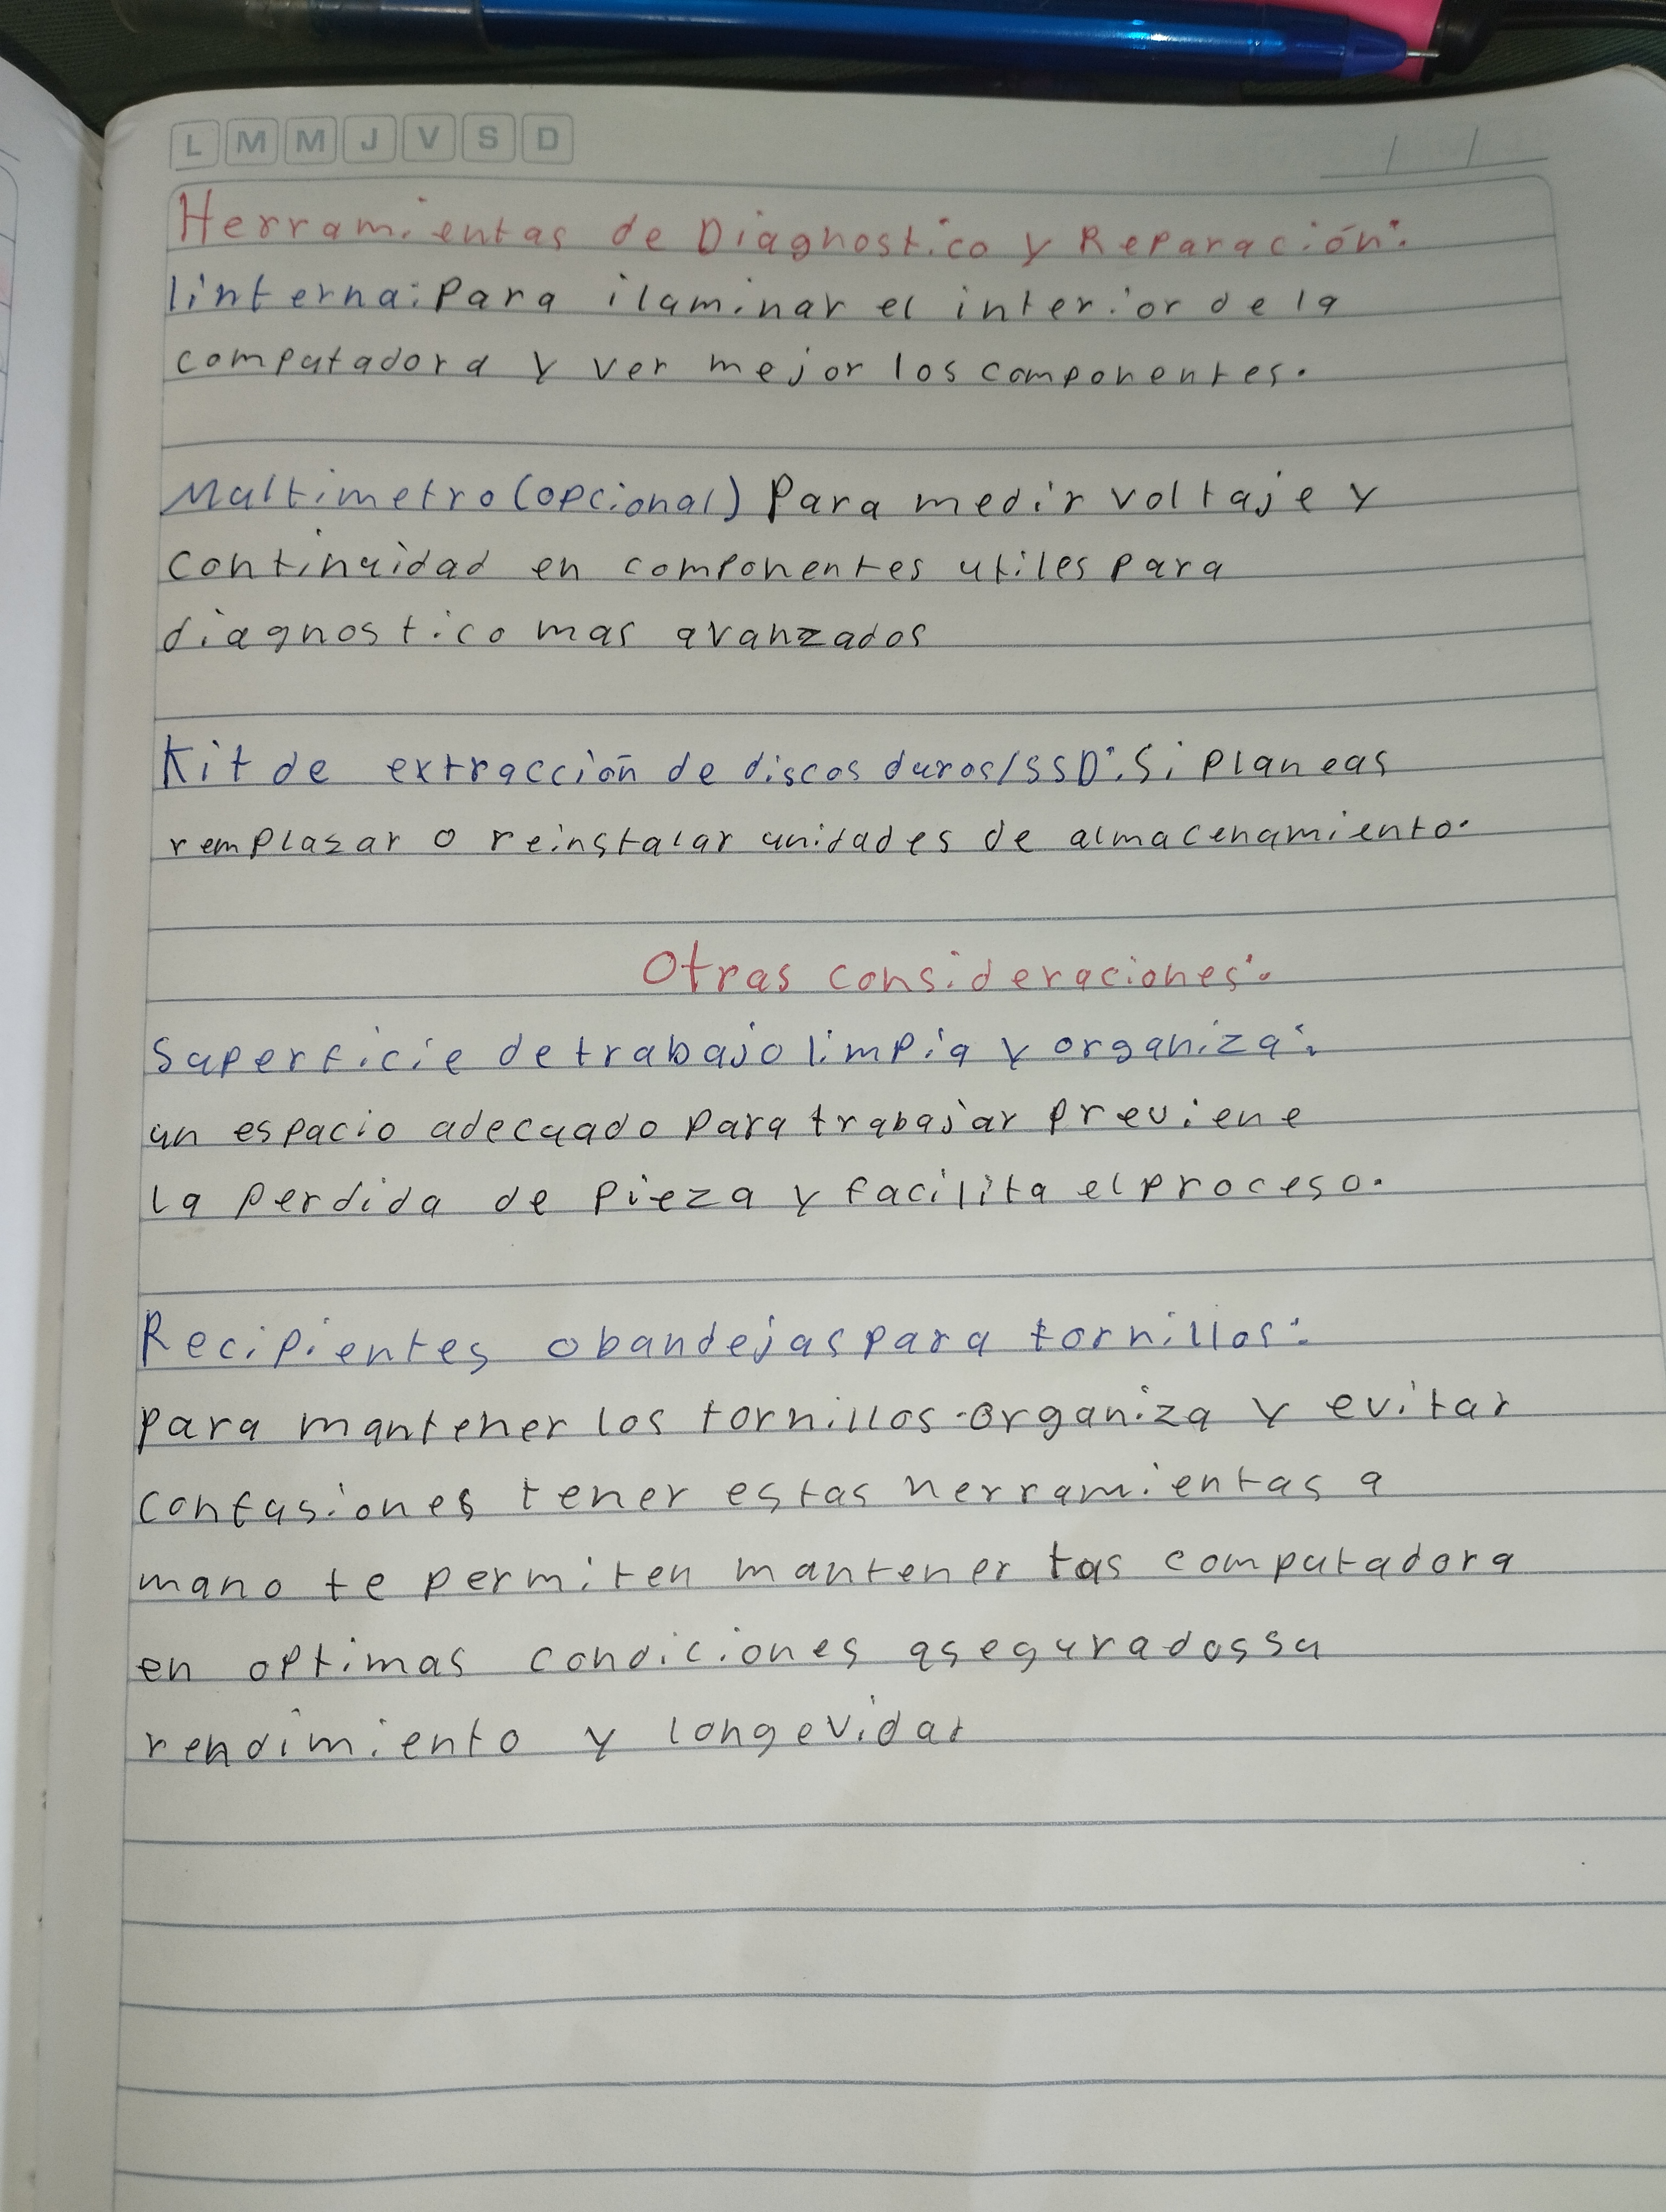 L M M J V S D
Herramientas de Diagnostico y Reparación:
linterna: Para iluminar el interior de la
computadora y ver mejor los componentes.
Multimetro (opcional) Para medir voltaje y
continuidad en componentes utiles para
diagnostico mas avanzados
Kit de extracción de discos duros/SSD: Si planeas
remplasar o reinstalar unidades de almacenamiento.
Otras consideraciones:
Superficie de trabajo limpia y organiza:
un espacio adecuado para trabajar previene
la perdida de pieza y facilita el proceso.
Recipientes o bandejas para tornillos:
para mantener los tornillos organiza y evitar
confusiones tener estas herramientas a
mano te permiten mantener tas computadora
en optimas condiciones aseguradossu
rendimiento y longevidad